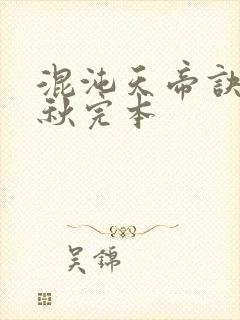 混沌天帝诀
秋完本
吴锦